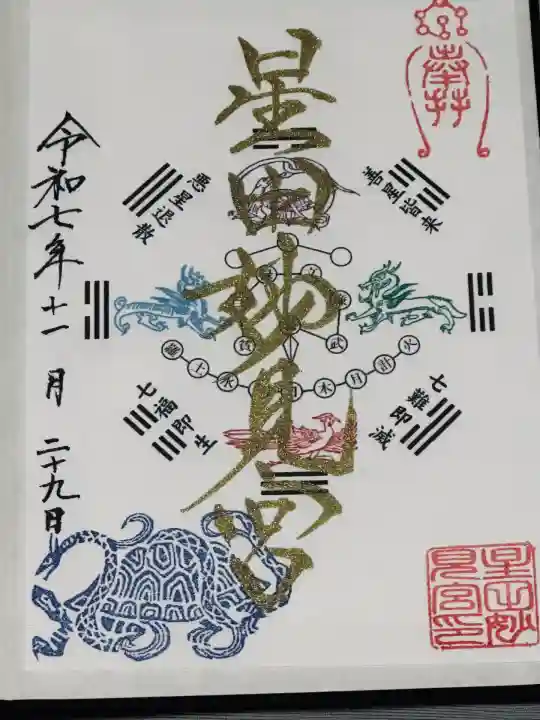 奉拝
星田妙見宮
善星皆来
悪星退散
七難即滅
七福即生
文
武
羅 土 水 日 木 月 計 火
令和七年十一月二十九日
星田妙見宮印